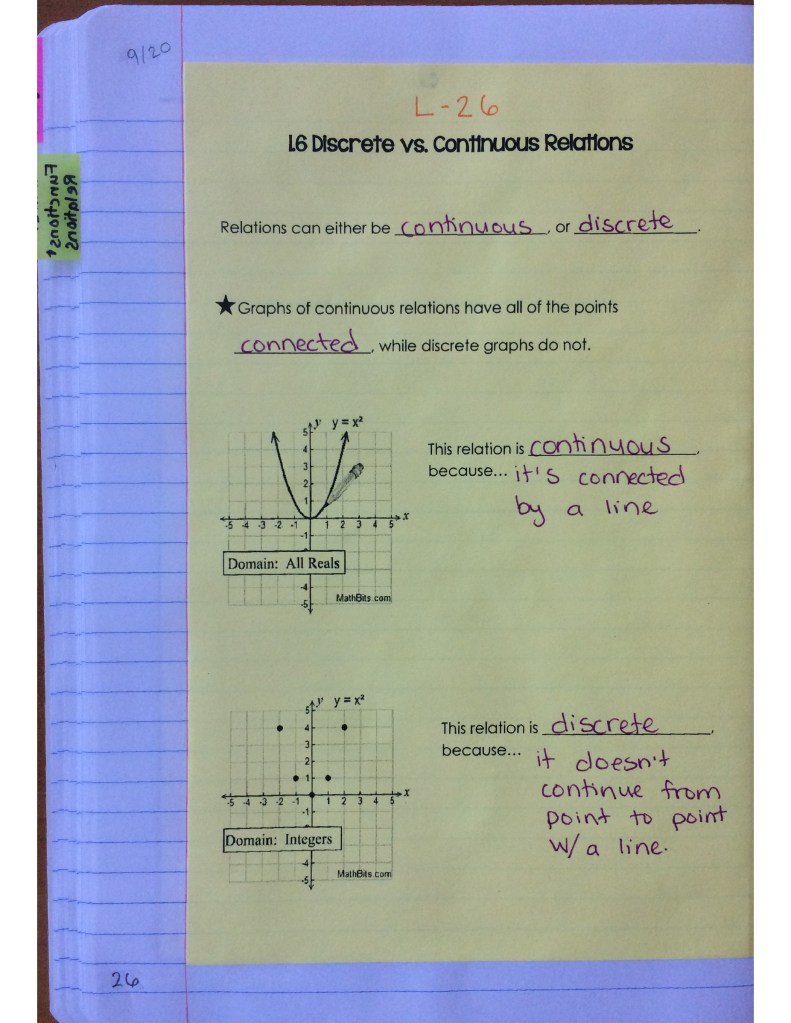 9/20
L-26
1.6 Discrete vs. Continuous Relations
Functions &
Relations
Relations can either be continuous, or discrete.
★ Graphs of continuous relations have all of the points
connected, while discrete graphs do not.
y y = x²
5
4
3
2
1
-5 -4 -3 -2 -1 1 2 3 4 5 x
-1
Domain: All Reals
-4
MathBits.com
-5
This relation is continuous,
because... it's connected
by a line
y y = x²
5
4
3
2
1
-5 -4 -3 -2 -1 1 2 3 4 5 x
-1
Domain: Integers
-4
MathBits.com
-5
This relation is discrete,
because... it doesn't
continue from
point to point
w/ a line.
26